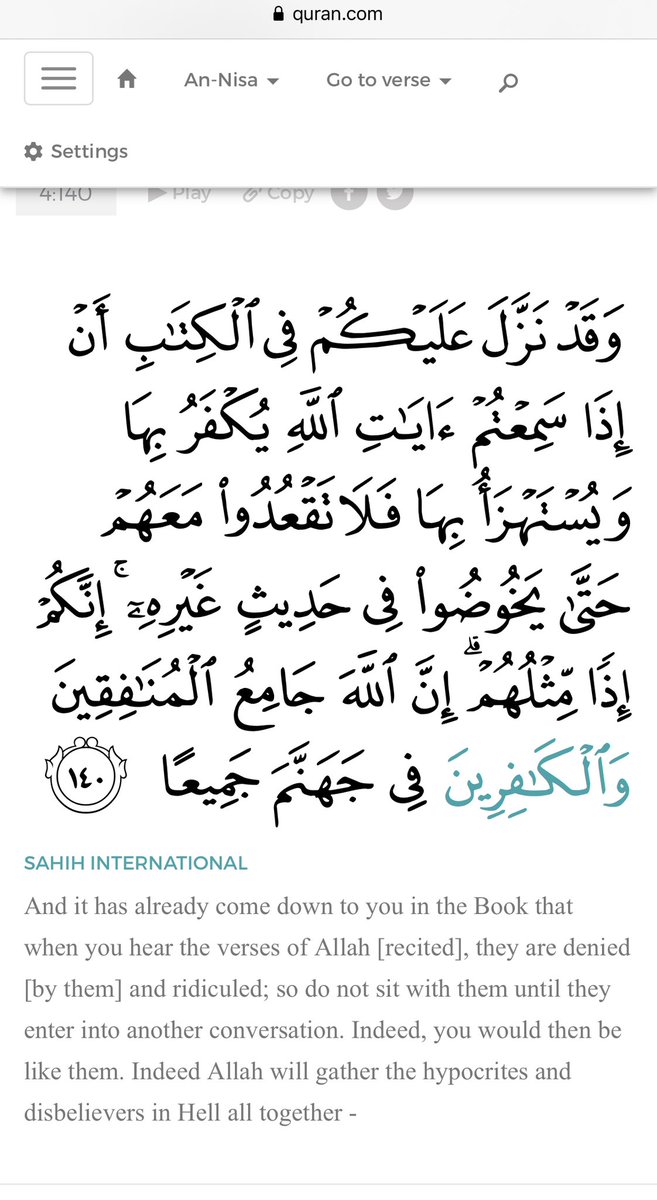 quran.com
An-Nisa Go to verse
Settings
4:140 Play Copy
وَقَدْ نَزَّلَ عَلَيْكُمْ فِى ٱلْكِتَـٰبِ أَنْ
إِذَا سَمِعْتُمْ ءَايَـٰتِ ٱللَّهِ يُكْفَرُ بِهَا
وَيُسْتَهْزَأُ بِهَا فَلَا تَقْعُدُوا۟ مَعَهُمْ
حَتَّىٰ يَخُوضُوا۟ فِى حَدِيثٍ غَيْرِهِۦٓ ۚ إِنَّكُمْ
إِذًا مِّثْلُهُمْ ۗ إِنَّ ٱللَّهَ جَامِعُ ٱلْمُنَـٰفِقِينَ
وَٱلْكَـٰفِرِينَ فِى جَهَنَّمَ جَمِيعًا ١٤٠
SAHIH INTERNATIONAL
And it has already come down to you in the Book that
when you hear the verses of Allah [recited], they are denied
[by them] and ridiculed; so do not sit with them until they
enter into another conversation. Indeed, you would then be
like them. Indeed Allah will gather the hypocrites and
disbelievers in Hell all together -